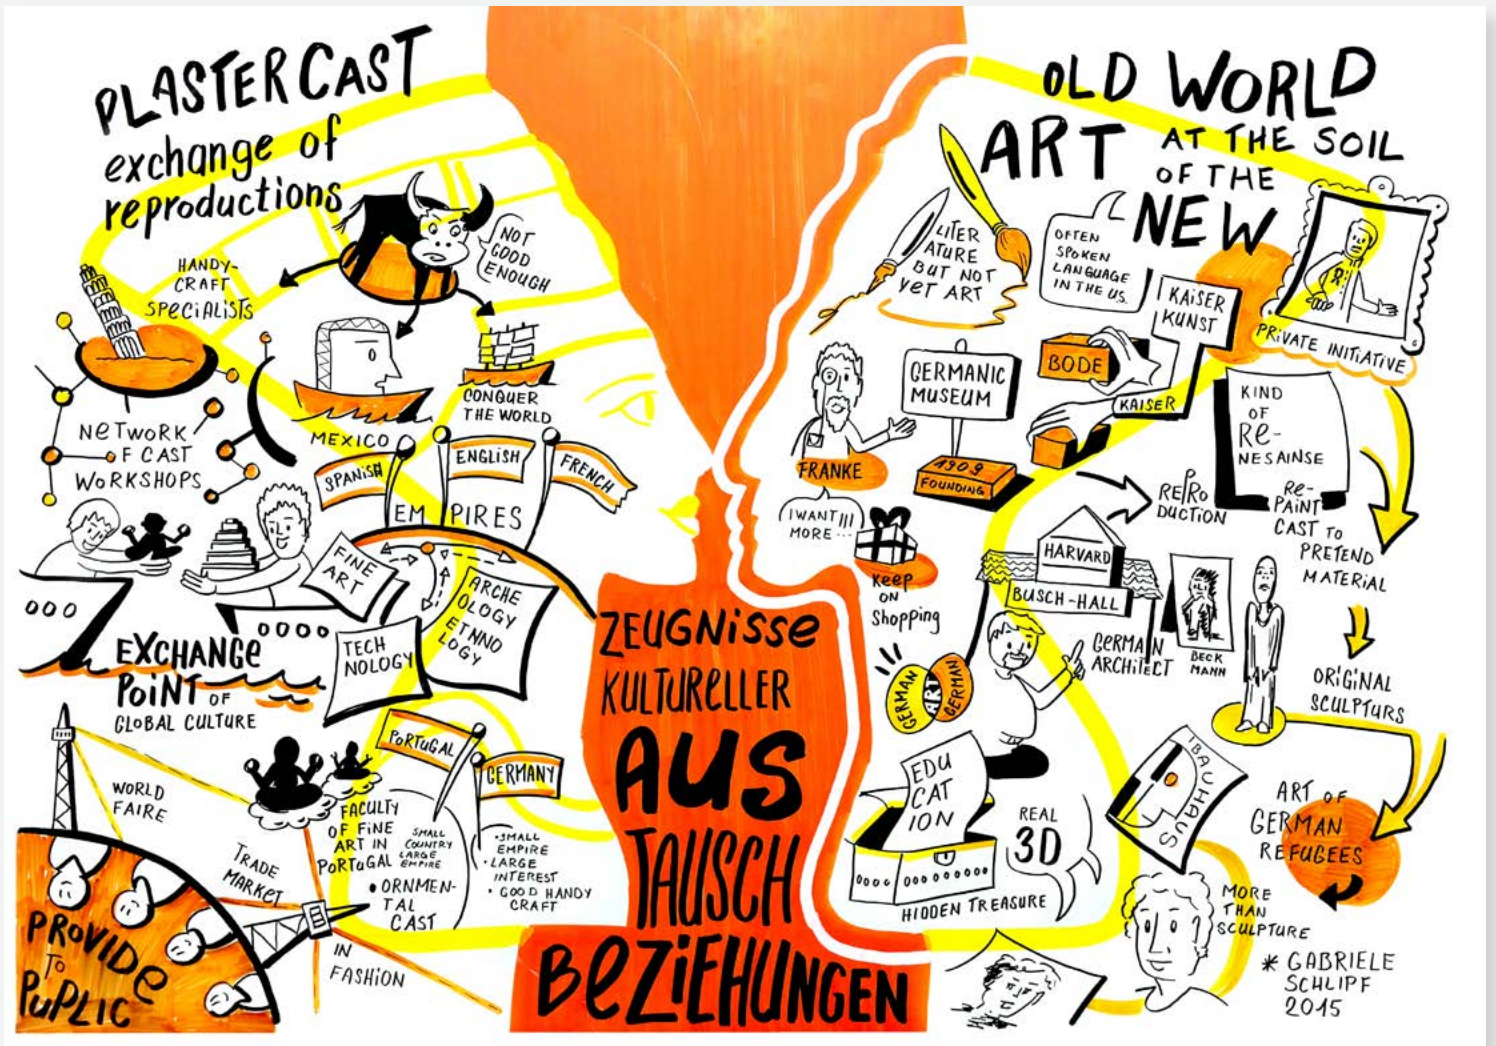 PLASTER CAST
exchange of
reproductions
NOT
GOOD
ENOUGH
HANDY-
CRAFT
SPECiALiSTS
NETWORK
OF CAST
WORKSHOPS
MEXICO
CONQUER
THE WORLD
SPANISH
ENGLISH
FRENCH
EMPIRES
FINE
ART
TECH
NOLOGY
ARCHE
OLOGY
ETNNO
LOGY
EXCHANGE
POiNT OF
GLOBAL CULTURE
WORLD
FAIRE
TRADE
MARKET
IN
FASHION
PROVIDE
TO
PUPLIC
PORTUGAL
GERMANY
FACULTY
OF FiNE
ART IN
PORTUGAL
SMALL
COUNTRY
LARGE
EMPIRE
• ORNMEN-
TAL
CAST
• SMALL
EMPIRE
• LARGE
INTEREST
• GOOD HANDY
CRAFT
ZEUGNisse
KULTUReLLER
AUS
TAUSCH
BeZiEHUNGEN
OLD WORLD
ART AT THE SOIL
OF THE
NEW
LITER
ATURE
BUT NOT
YeT ART
OFTEN
SPOKEN
LANGUAGE
IN THE US.
KAiSER
KUNST
PRiVATE INiTiATiVE
FRANKE
GERMANIC
MUSEUM
1909
FOUNDING
BODE
KAISER
I WANT!!!
MORE ...
Keep
ON
Shopping
REPRO
DUCTION
KIND
OF
Re-
NESAINSE
Re-
PAiNT
CAST TO
PRETEND
MATERiAL
HARVARD
BUSCH-HALL
GERMAN
ARCHiTECT
BECK
MANN
ORiGiNAL
SCULPTURS
GERMAN
ART
GERMAN
EDU
CAT
ION
REAL
3D
HIDDEN TREASURE
BAUHAUS
ART OF
GERMAN
REFUGEES
MORE
THAN
SCULPTURE
* GABRIELE
SCHLIPF
2015